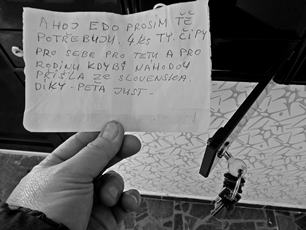 AHOJ EDO PROSÍM TĚ
POTŘEBUJU. 4 KS TY. ČIPY
PRO SEBE PRO TETU A PRO
RODINU KDYBY NÁHODOU
PŘIŠLA ZE SLOVENSKA.
DÍKY - PETA JUST -